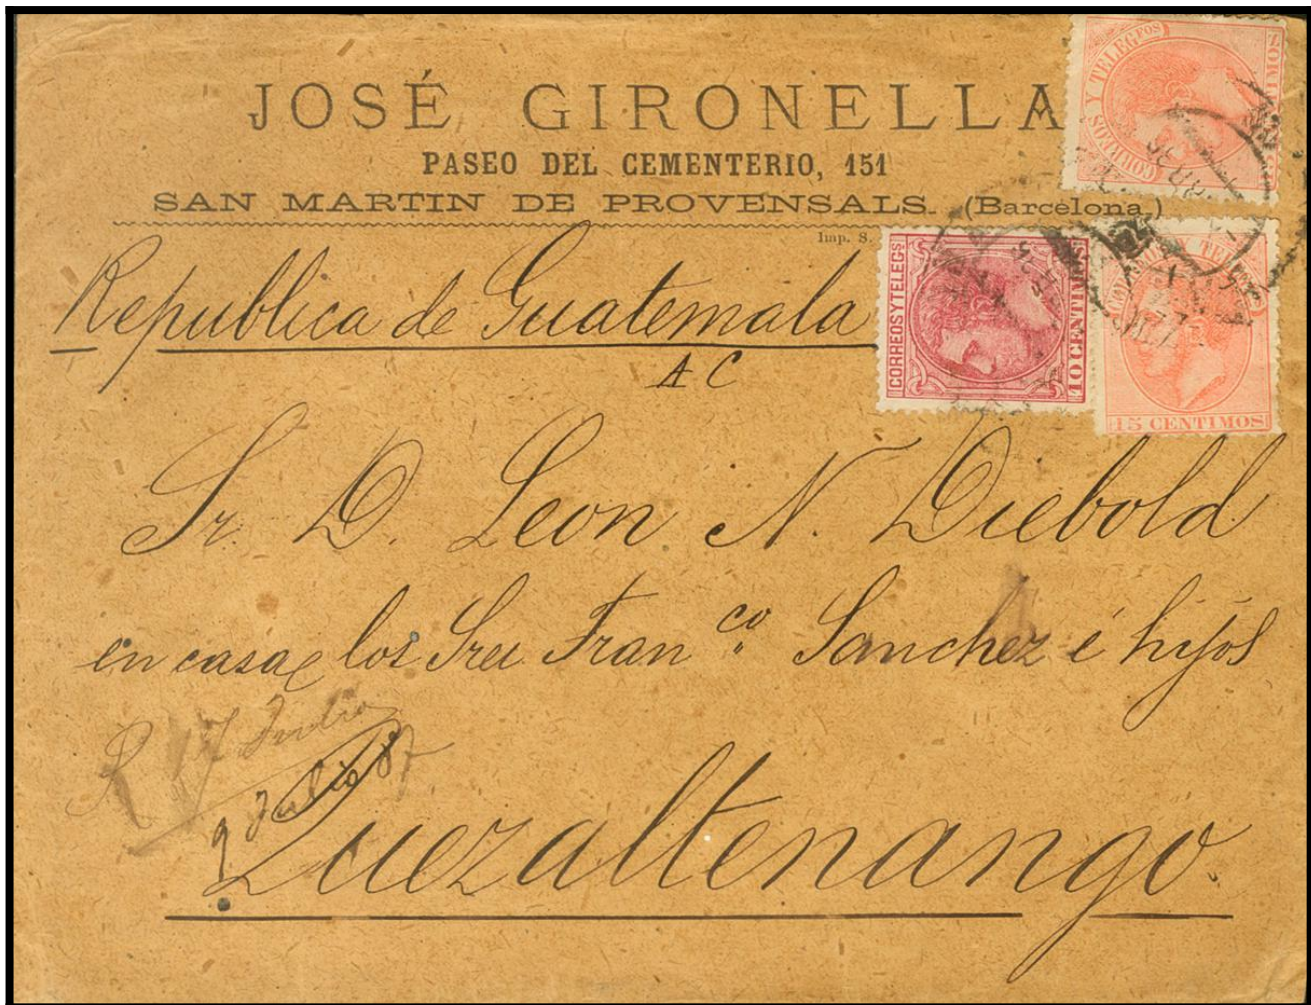 JOSÉ GIRONELLA
PASEO DEL CEMENTERIO, 151
SAN MARTIN DE PROVENSALS. (Barcelona.)
Imp. S.
CORREOS Y TELEGFOS
15 CENTIMOS
CORREOS Y TELEGS
10 CENTIMOS
CORREOS Y TELEGFOS
15 CENTIMOS
Republica de Guatemala
A C
Sr. D. Leon N. Diebold
en casa los Sres Franco Sanchez é hijos
R 17 Julio
9 Julio 87
Quezaltenango.